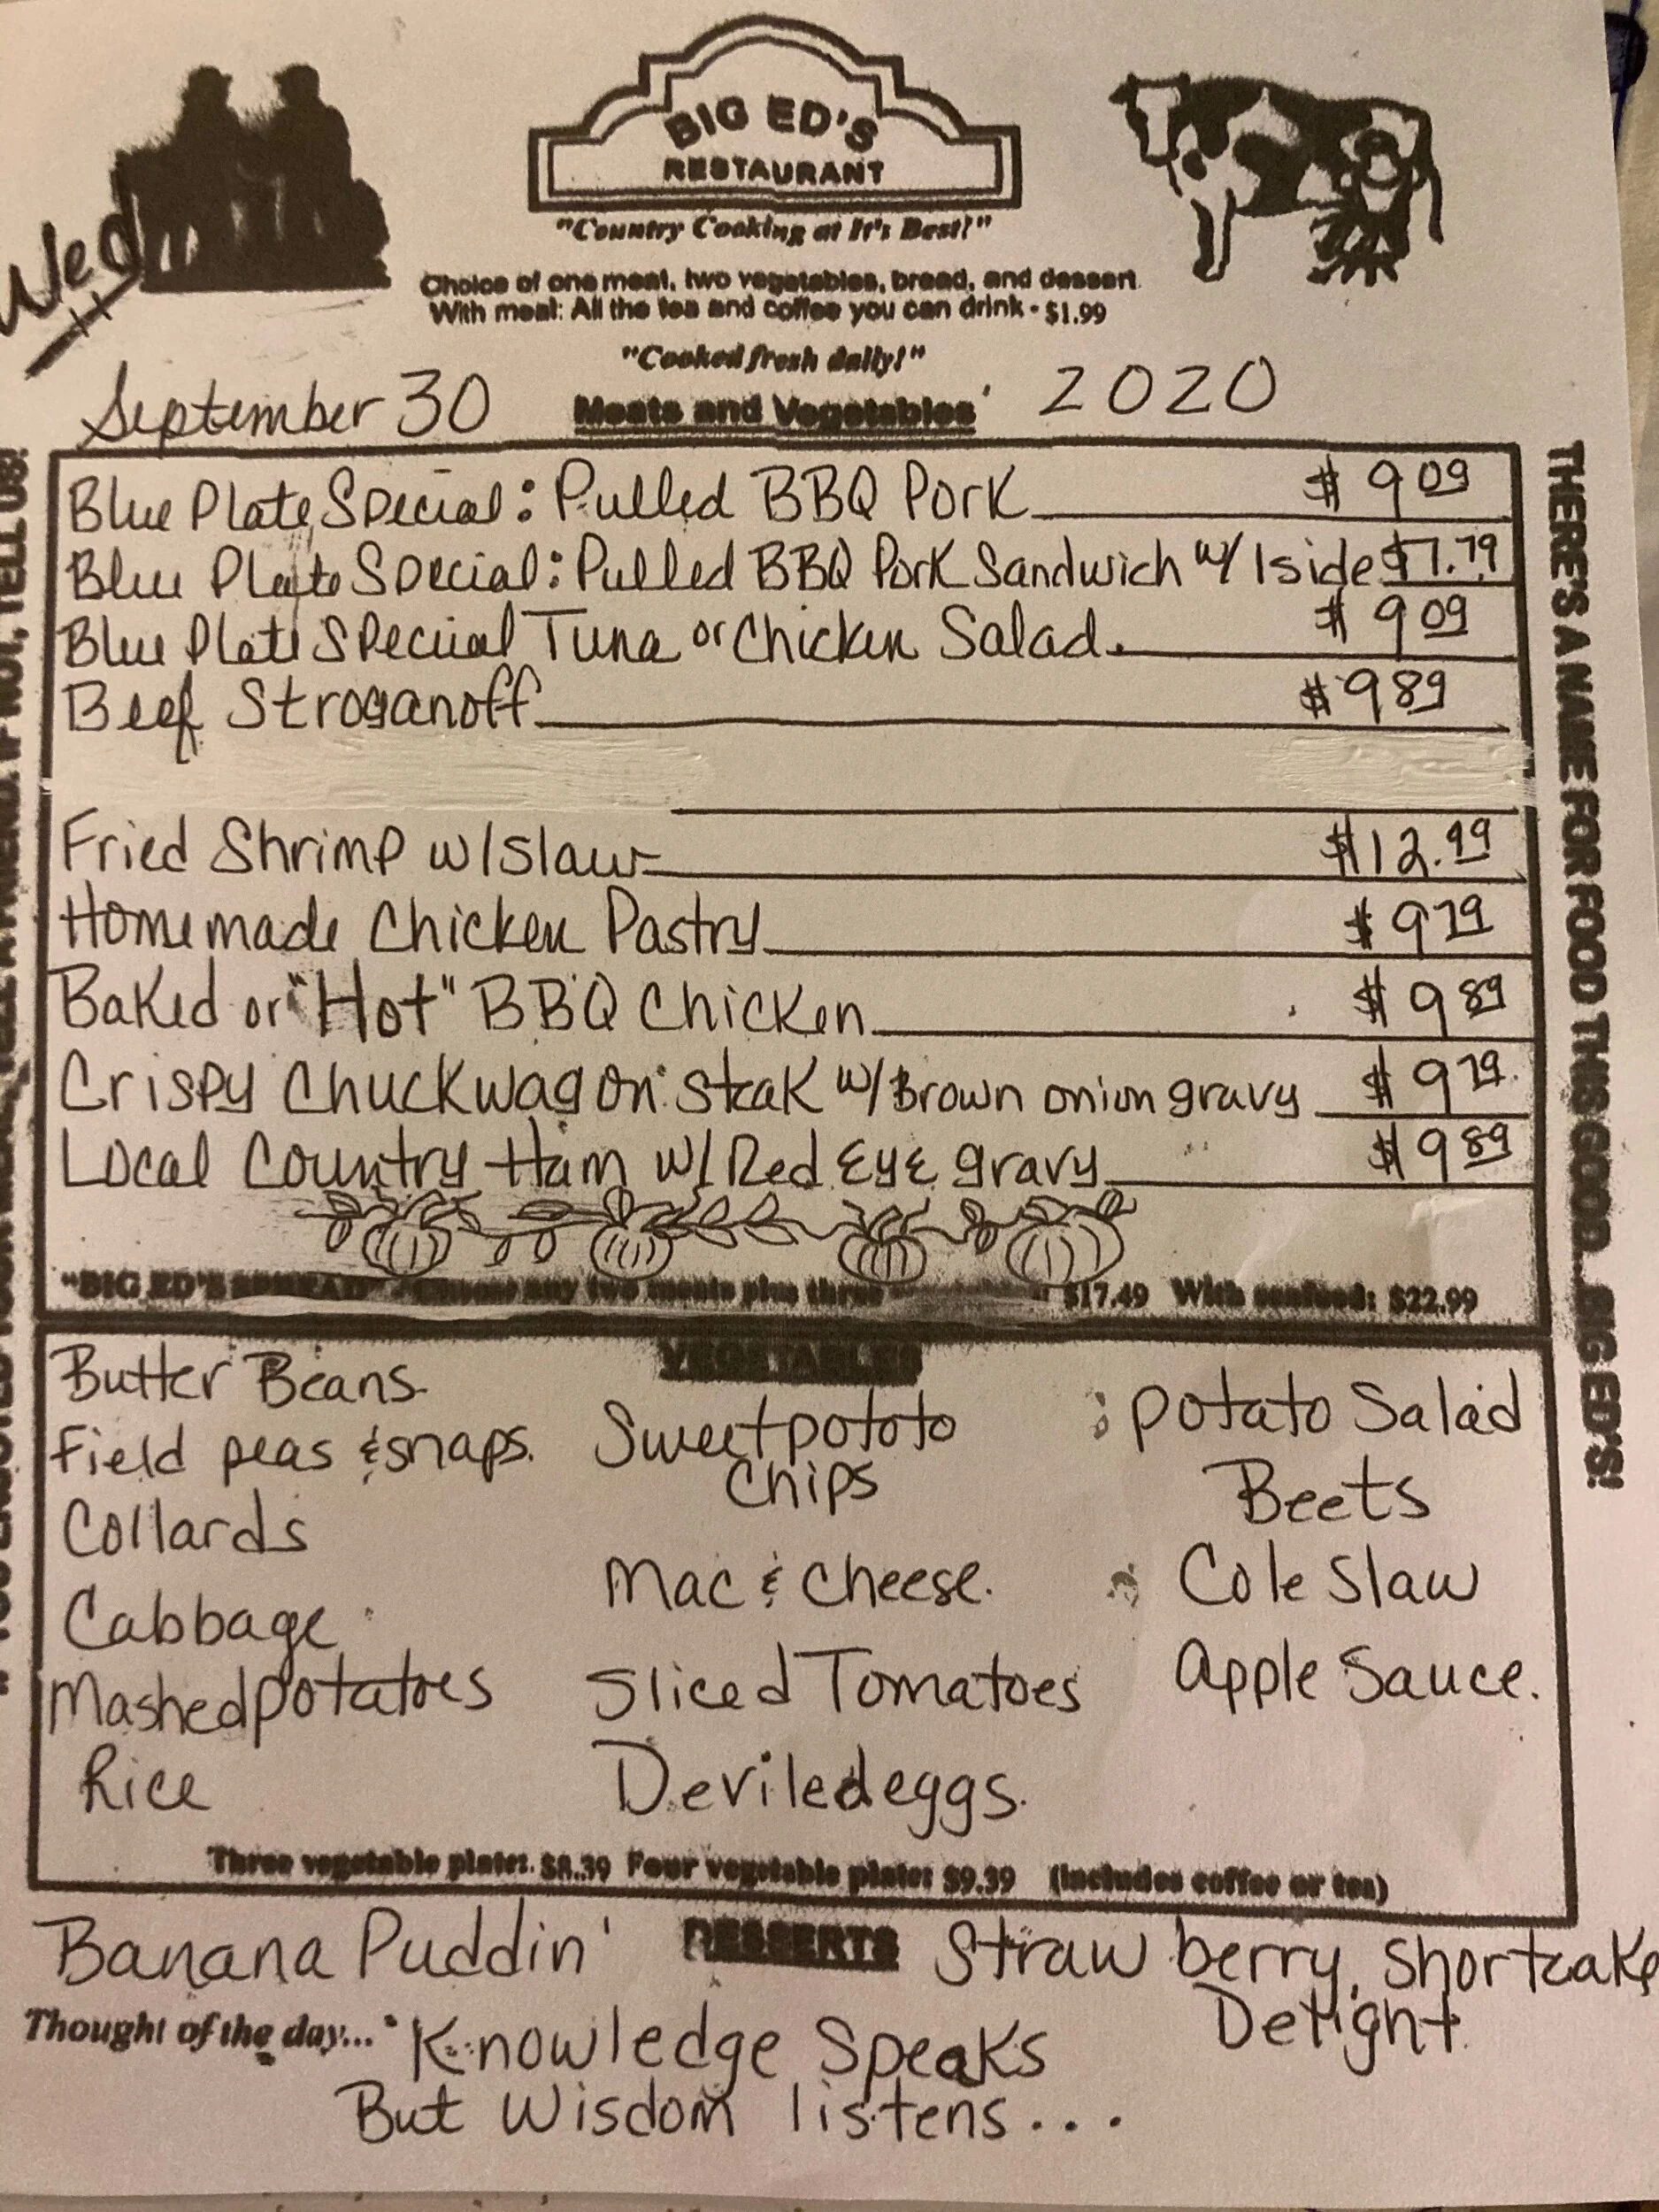 BIG ED'S
RESTAURANT
"Country Cooking at It's Best!"
Wed
Choice of one meat, two vegetables, bread, and dessert
With meat: All the tea and coffee you can drink - $1.99
"Cooked fresh daily!"
September 30 Meats and Vegetables 2020
Blue Plate Special: Pulled BBQ Pork $9.09
Blue Plate Special: Pulled BBQ Pork Sandwich w/ 1 side $7.79
Blue Plate Special Tuna or Chicken Salad. $9.09
Beef Stroganoff $9.89
Fried Shrimp w/slaw $12.99
Homemade Chicken Pastry $9.79
Baked or "Hot" BBQ Chicken $9.89
Crispy Chuckwagon Steak w/Brown onion gravy $9.79
Local Country Ham w/Red Eye gravy $9.89
"BIG ED'S any two meats plus three $17.49 With seafood: $22.99
VEGETABLES
Butter Beans
Field peas & snaps.
Collards
Cabbage
Mashed potatoes
Rice
Sweet pototo
Chips
Mac & Cheese.
Sliced Tomatoes
Deviled eggs.
Potato Salad
Beets
Cole Slaw
Apple Sauce.
Three vegetable plate: $8.39 Four vegetable plate: $9.39 (includes coffee or tea)
Banana Puddin' DESSERTS Strawberry, Shortcake
Delight
Thought of the day... Knowledge Speaks
But Wisdom listens...
THERE'S A NAME FOR FOOD THIS GOOD...BIG ED'S!
IF NOT, TELL US!